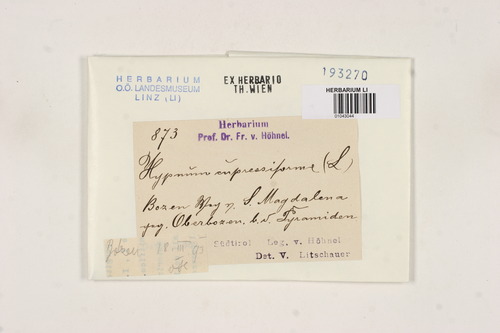 HERBARIUM
O.Ö. LANDESMUSEUM
LINZ (LI)
EX HERBARIO
TH. WIEN
193270
HERBARIUM LI
01043044
873
Herbarium
Prof. Dr. Fr. v. Höhnel.
Hypnum cupressiforme (L)
Bozen Weg v. S. Magdalena
geg. Oberbozen b. d. Pyramiden
Südtirol Leg. v. Höhnel
Det. V. Litschauer